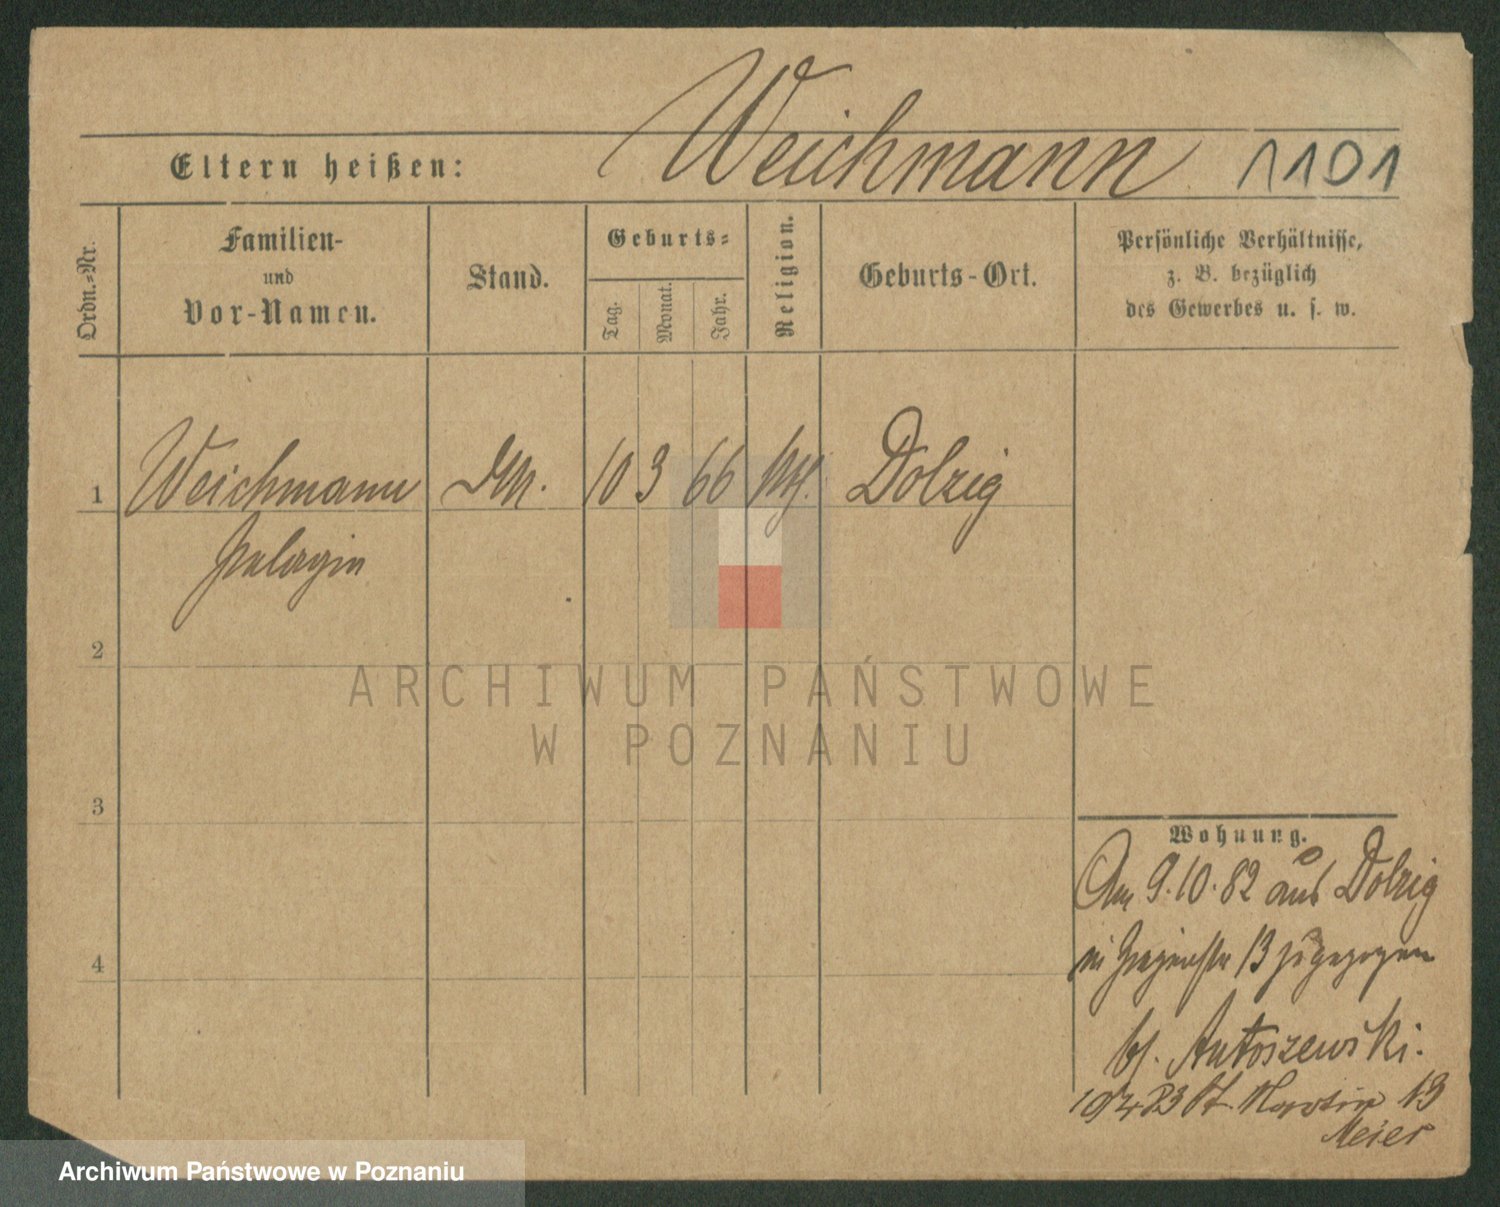 Weichmann 1101
Eltern heißen:
Ordn.-Nr.
Familien-
und
Vor-Namen.
Stand.
Geburts-
Tag.
Monat.
Jahr.
Religion.
Geburts-Ort.
Persönliche Verhältnisse,
z. B. bezüglich
des Gewerbes u. s. w.
1 Weichmann 10 3 66 Dolzig
Pelagia
2
3
4
Wohnung.
Am 9.10.82 aus Dolzig
in 13 zugezogen
bf. Antoszewski.
83 St. Martin 13
Meier
ARCHIWUM PAŃSTWOWE
W POZNANIU
Archiwum Państwowe w Poznaniu